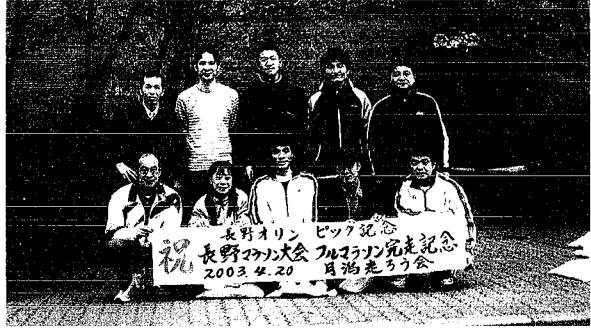 長野オリンピック記念
祝 長野マラソン大会 フルマラソン完走記念
2003.4.20 月潟走ろう会